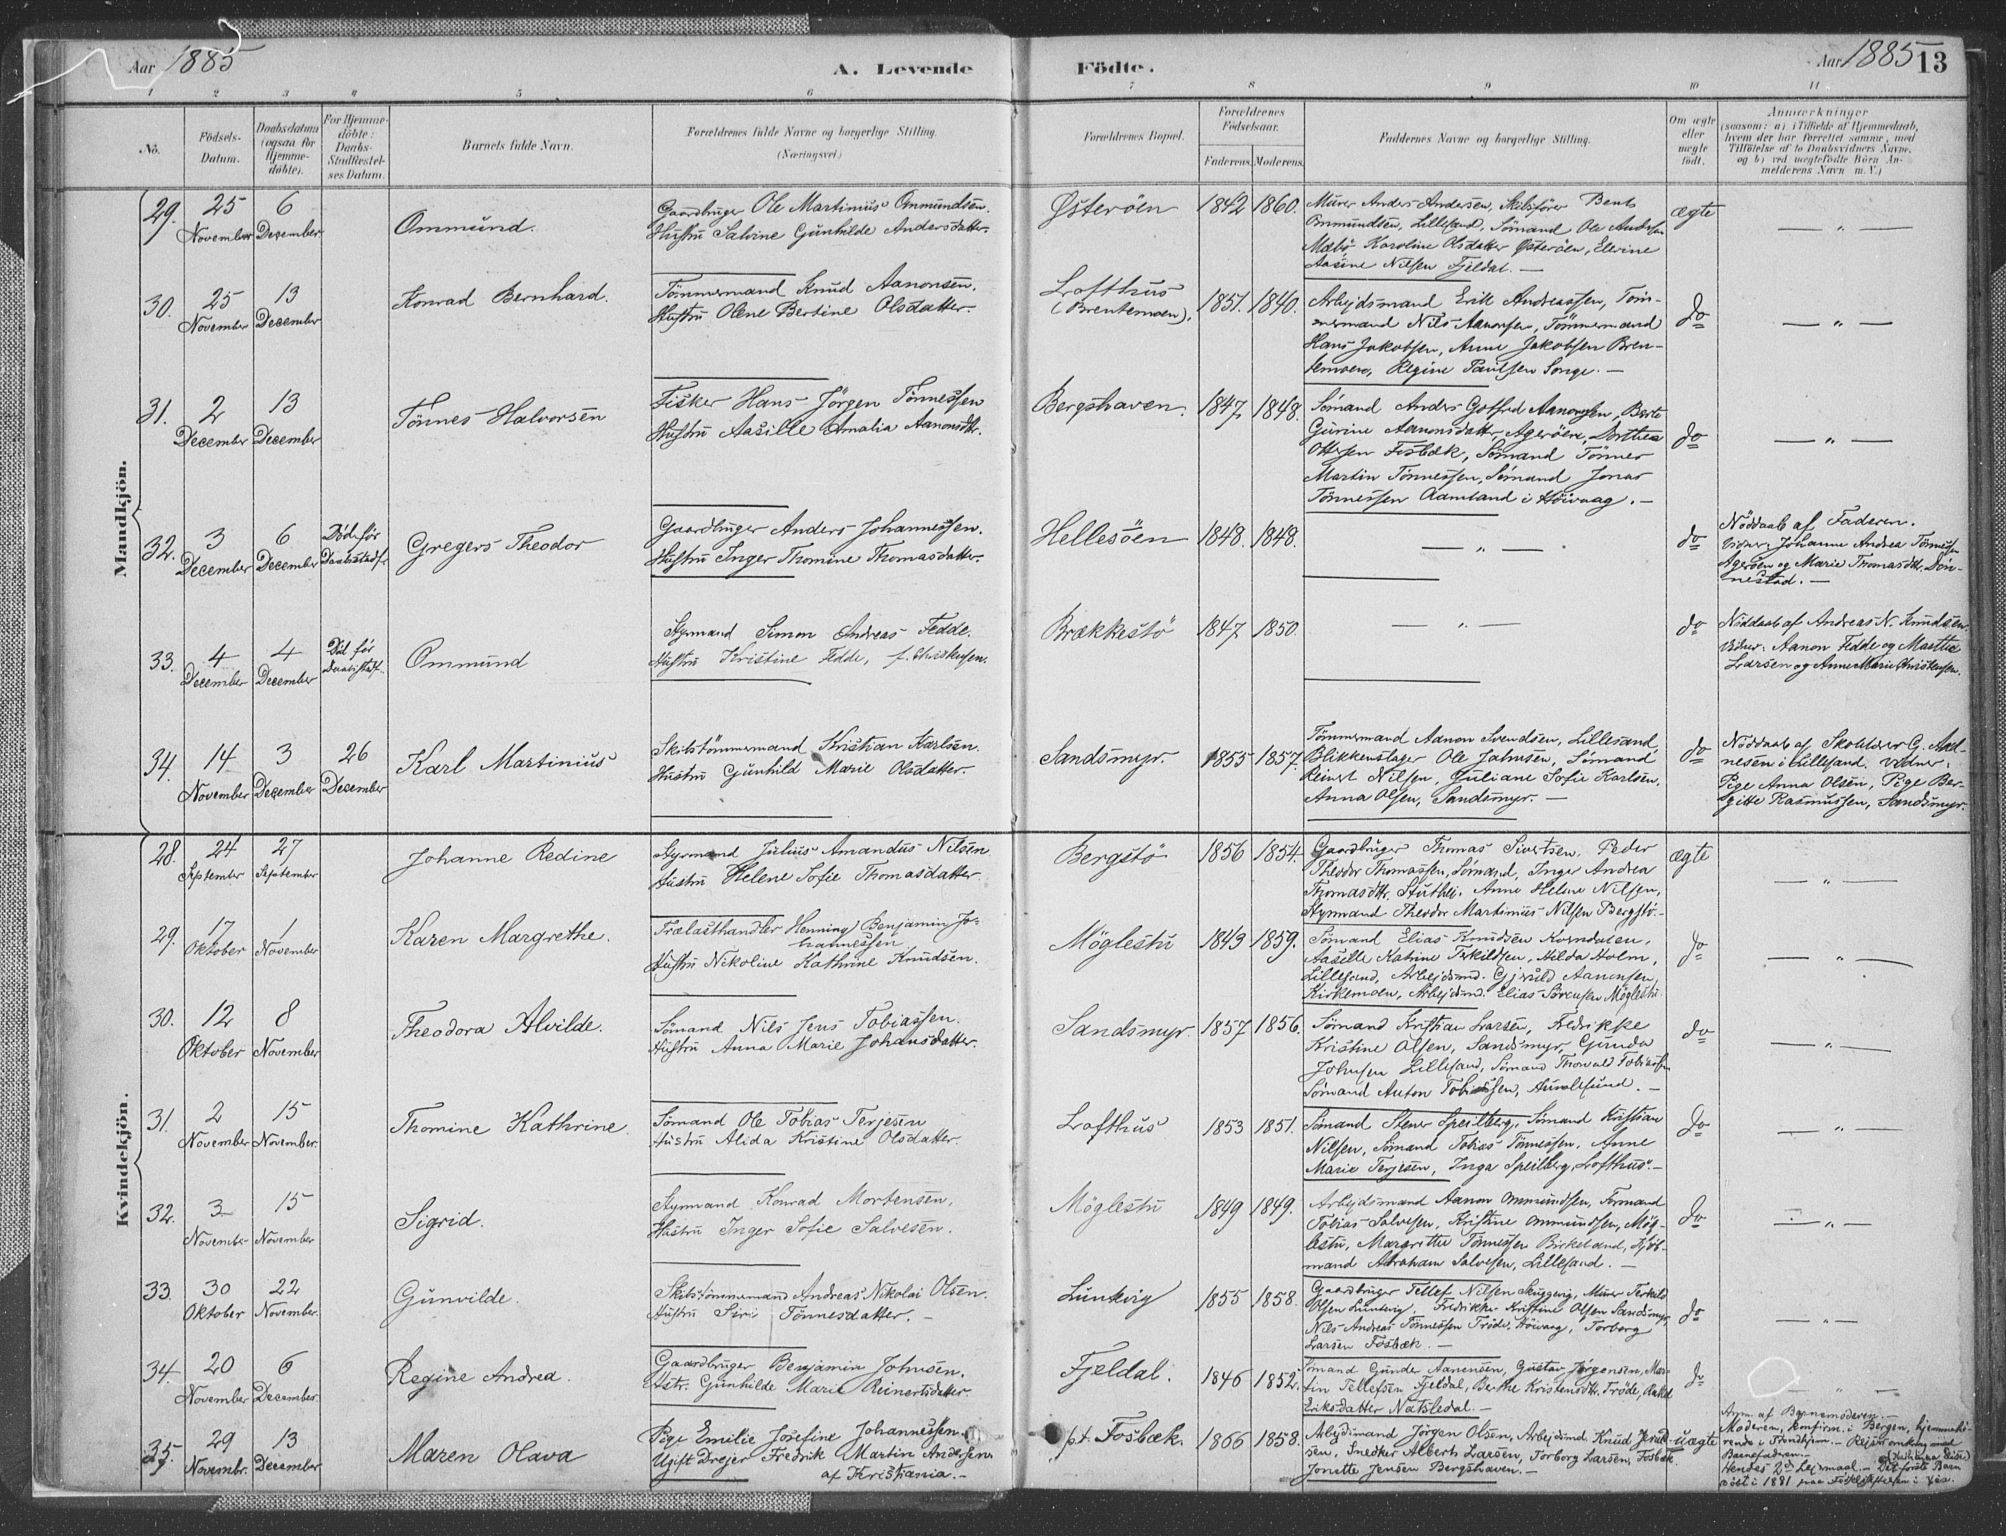 Aar 1885
A. Levende
Födte.
Aar 1885
13
1 2 3 4 5 6 7 8 9 10 11
No.
Födsels-
Datum.
Daabsdatum
(ogsaa for
Hjemme-
döbte).
For Hjemme-
döbte:
Daabs-
Stadfæstel-
ses Datum.
Barnets fulde Navn.
Forældrenes fulde Navne og borgerlige Stilling.
(Næringsvei.)
Forældrenes Bopæl.
Forældrenes
Födselsaar.
Faderens. Moderens.
Faddernes Navne og borgerlige Stilling.
Om ægte
eller
uægte
født.
Anmærkninger
(saasom: a) i Tilfælde af Hjemmedaab,
hvem der har forrettet samme, med
Tilföielse af to Daabsvidners Navne,
og b) ved uægtefödte Börn An-
melderens Navn m. V.)
Mandkjön.
29.
25
November
6
December
Ommund.
Gaardbruger Ole Martinius Ommundsen.
Hustru Salvine Gunhilde Andersdatter.
Østerøen
1842 1860.
Murer Anders Andersen, Skibsfører Bent
Ommundsen, Lillesand, Sømand Ole Andersen
Mæbø, Karoline Olsdatter Østerøen, Elevine
Aasine Nilsen Fjeldal. —
ægte
— " —
30.
25
November
13
December
Konrad Bernhard.
Tømmermand Knud Aanonsen.
Hustru Olene Bertine Olsdatter.
Lofthus
(Brentemoen).
1851. 1840.
Arbejdsmand Erik Andreassen, Tøm-
mermand Nils Aanonsen, Tømmermand
Hans Jakobsen, Anne Jakobsen Bren-
temoen, Regine Paulsen Songe. —
do
— " —
31.
2
December
13
December
Tønnes Halvorsen
Fisker Hans Jørgen Tønnessen
Hustru Aasille Amalia Aanonsdtr.
Bergshaven.
1847. 1848.
Sømand Anders Gotfred Aanonsen, Berte
Gurine Aanonsdatter, Agerøen, Dorthea
Ottesen Fosbæk, Sømand Tønnes
Martin Tønnessen, Sømand Jonas
Tønnessen Aamland i Høivaag. —
do
— " —
32.
3
December
6
December
Døde før
Daabsstadf.
Gregers Theodor
Gaardbruger Anders Johannessen.
Hustru Inger Thomine Thomasdatter.
Hellesøen
1848. 1848.
— " —
do
Nøddaab af Faderen.
Vidner: Johanne Andrea Tønnessen
Agerøen og Marie Thomasdtr. Døn-
nestad. —
33.
4
December
4
December
Død før
Daabsstadf.
Ommund
Styrmand Simon Andreas Fedde.
Hustru Kristine Fedde, f. Christensen.
Brækkestø
1847. 1850.
— " —
do
Nøddaab af Andreas N. Knudsen.
Vidner: Aanon Fedde og Marthe
Larsen og Anne Marie Christensen.
34.
14
November
3
December
26
December
Karl Martinius
Skibstømmermand Kristian Karlsen.
Hustru Gunhild Marie Olsdatter.
Sandsmyr.
1855 1857.
Tømmermand Aanon Svendsen, Lillesand,
Blikkenslager Ole Johnsen, Sømand
Reinert Nilsen, Juliane Sofie Karlsen,
Anna Olsen, Sandsmyr. —
do
Nøddaab af Skolelærer G.
i Lillesand. Vidner:
Pige Anna Olsen, Pige Ber-
gitte Rasmussen, Sandsmyr.
Kvindekjön.
28.
24
September
27
September
Johanne Redine
Styrmand Julius Amandus Nilsen
Hustru Helene Sofie Thomasdatter.
Bergstø
1856 1854.
Gaardbruger Thomas Sivertsen, Peder
Theodor Thomassen, Sømand, Inger Andrea
Thomasdtr. Stuthei, Anne Helene Nilsen,
Styrmand Theodor Martinius Nilsen Bergstø. —
ægte
— " —
29.
17
Oktober
1
November
Karen Margrethe.
Trælasthandler Henning Benjamin Jo-
hannessen
Hustru Nikoline Kathrine Knudsen.
Møglestu
1849 1859.
Sømand Elias Knudsen Korndalen,
Aasille Katrine Terkildsen, Hilda Holm,
Lillesand, Arbejdsmd. Gjeruld Aanonsen
Kirkemoen, Arbejdsmd. Elias Sørensen Møglestu.
do
— " —
30.
12
Oktober
8
November
Theodora Alvilde.
Sømand Nils Jens Tobiassen.
Hustru Anna Marie Johansdatter.
Sandsmyr.
1857 1856.
Sømand Kristian Larsen, Fredrikke
Kristine Olsen, Sandsmyr, Gunda
Johnsen Lillesand, Sømand Thorvald Tobiassen
Sømand Anton Tobiassen, Aavolesund. —
do
— " —
31.
2
November
15
November.
Thomine Kathrine.
Sømand Ole Tobias Terjesen
Hustru Alida Kristine Olsdatter.
Lofthus
1853 1851.
Sømand Stener Speilberg, Sømand Kristian
Nilsen, Sømand Tobias Tønnessen, Anne
Marie Terjesen, Inga Speilberg, Lofthus. —
do
— " —
32.
3
November
15
November
Sigrid.
Styrmand Konrad Mortensen,
Hustru Inger Sofie Salvesen.
Møglestu
1849 1849.
Arbejdsmand Aanon Ommundsen, Formand
Tobias Salvesen, Kristine Ommundsen, Møg-
lestu, Margrethe Tønnessen Birkeland, Kjøb-
mand Abraham Salvesen, Lillesand. —
do
— " —
33.
30
Oktober
22
November.
Gunvilde.
Skibstømmermand Andreas Nikolai Olsen.
Hustru Siri Tønnesdatter. —
Lunkvig
1855 1858.
Gaardbruger Tellef Nilsen Skiggevig, Murer Terkild
Olsen Lunkvig, Fredrikke Kristine Olsen Sandsmyr,
Nils Andreas Tønnessen Trøde, Høivaag, Torborg
Larsen Fosbæk. —
do
— " —
34.
20
November
6
December.
Regine Andrea.
Gaardbruger Benjamin Johnsen.
Hstr. Gunhilde Marie Reinertsdatter.
Fjeldal.
1846 1852.
Sømand Gunder Aanensen, Gustav Jørgensen, Mar-
tin Tellefsen Fjeldal, Berthe Kristensdtr. Trøde,
Eriksdatter Natsledal. —
do
— " —
35.
29
Novembr.
13
December
Maren Olava
Pige Emilie Josefine Johannessen.
Ugift Drejer Fredrik Martin Andersen
af Kristiania. —
pt. Fosbæk.
1866 1858.
Arbejdsmand Jørgen Olsen, Arbejdsmd. Knud
sen, Snedker Alberth Larsen, Torborg Larsen, Fosbæk,
Jonette Jensen Bergshaven. —
uægte
Anm. af Barnemoderen. —
Moderen, konfirm. i Bergen, hjemmehø-
rende i Trondhjem. — Rejser omkring med
Barnefaderen. —
Hendes 2det Lejermaal. — Det første Barn
født i 1881 paa Fødselsstiftelsen i Xia.